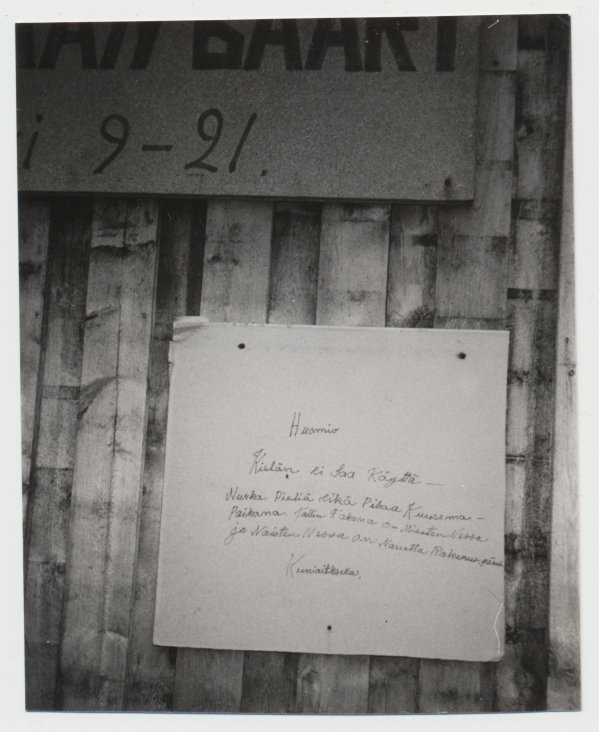 BAARI
9-21.
Huomio
Kielän ei Saa Käyttä -
Nurka Pieliä eikä Pihaa Kuusema -
Paikana Tallin Takana on Miesten Vessa
ja Naisten Vessa on Navetta Rakenus
Kunioitksela,